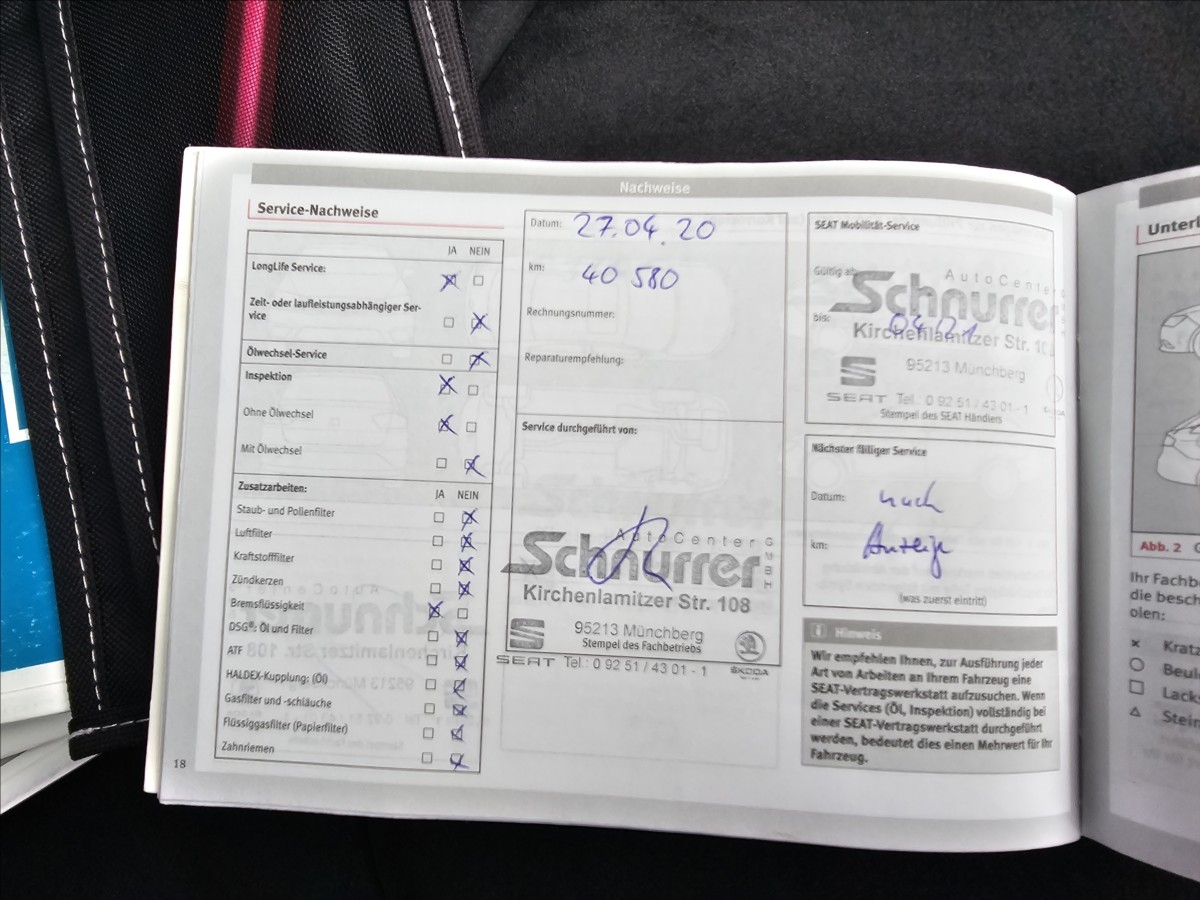 Nachweise
Service-Nachweise
JA NEIN
LongLife Service:
Zeit- oder laufleistungsabhängiger Ser-
vice
Ölwechsel-Service
Inspektion
Ohne Ölwechsel
Mit Ölwechsel
Zusatzarbeiten:
JA NEIN
Staub- und Pollenfilter
Luftfilter
Kraftstofffilter
Zündkerzen
Bremsflüssigkeit
DSG®: Öl und Filter
ATF
HALDEX-Kupplung: (Öl)
Gasfilter und -schläuche
Flüssiggasfilter (Papierfilter)
Zahnriemen
18
Datum: 27.04.20
km: 40 580
Rechnungsnummer:
Reparaturempfehlung:
Service durchgeführt von:
AutoCenter GMBH
Schnurrer
Kirchenlamitzer Str. 108
95213 Münchberg
Stempel des Fachbetriebs
SEAT Tel.: 0 92 51 / 43 01 - 1 ŠKODA
SEAT Mobilität-Service
Gültig ab:
AutoCenter
Schnurrer
bis: 04/21
Kirchenlamitzer Str. 10
95213 Münchberg
SEAT Tel.: 0 92 51 / 43 01 - 1
Stempel des SEAT Händlers
Nächster fälliger Service
Datum: nach
km: Anzeige
(was zuerst eintritt)
Hinweis
Wir empfehlen Ihnen, zur Ausführung jeder
Art von Arbeiten an Ihrem Fahrzeug eine
SEAT-Vertragswerkstatt aufzusuchen. Wenn
die Services (Öl, Inspektion) vollständig bei
einer SEAT-Vertragswerkstatt durchgeführt
werden, bedeutet dies einen Mehrwert für Ihr
Fahrzeug.
Unterl
Abb. 2
Ihr Fachb
die besch
olen:
Kratz
Beul
Lack
Stein